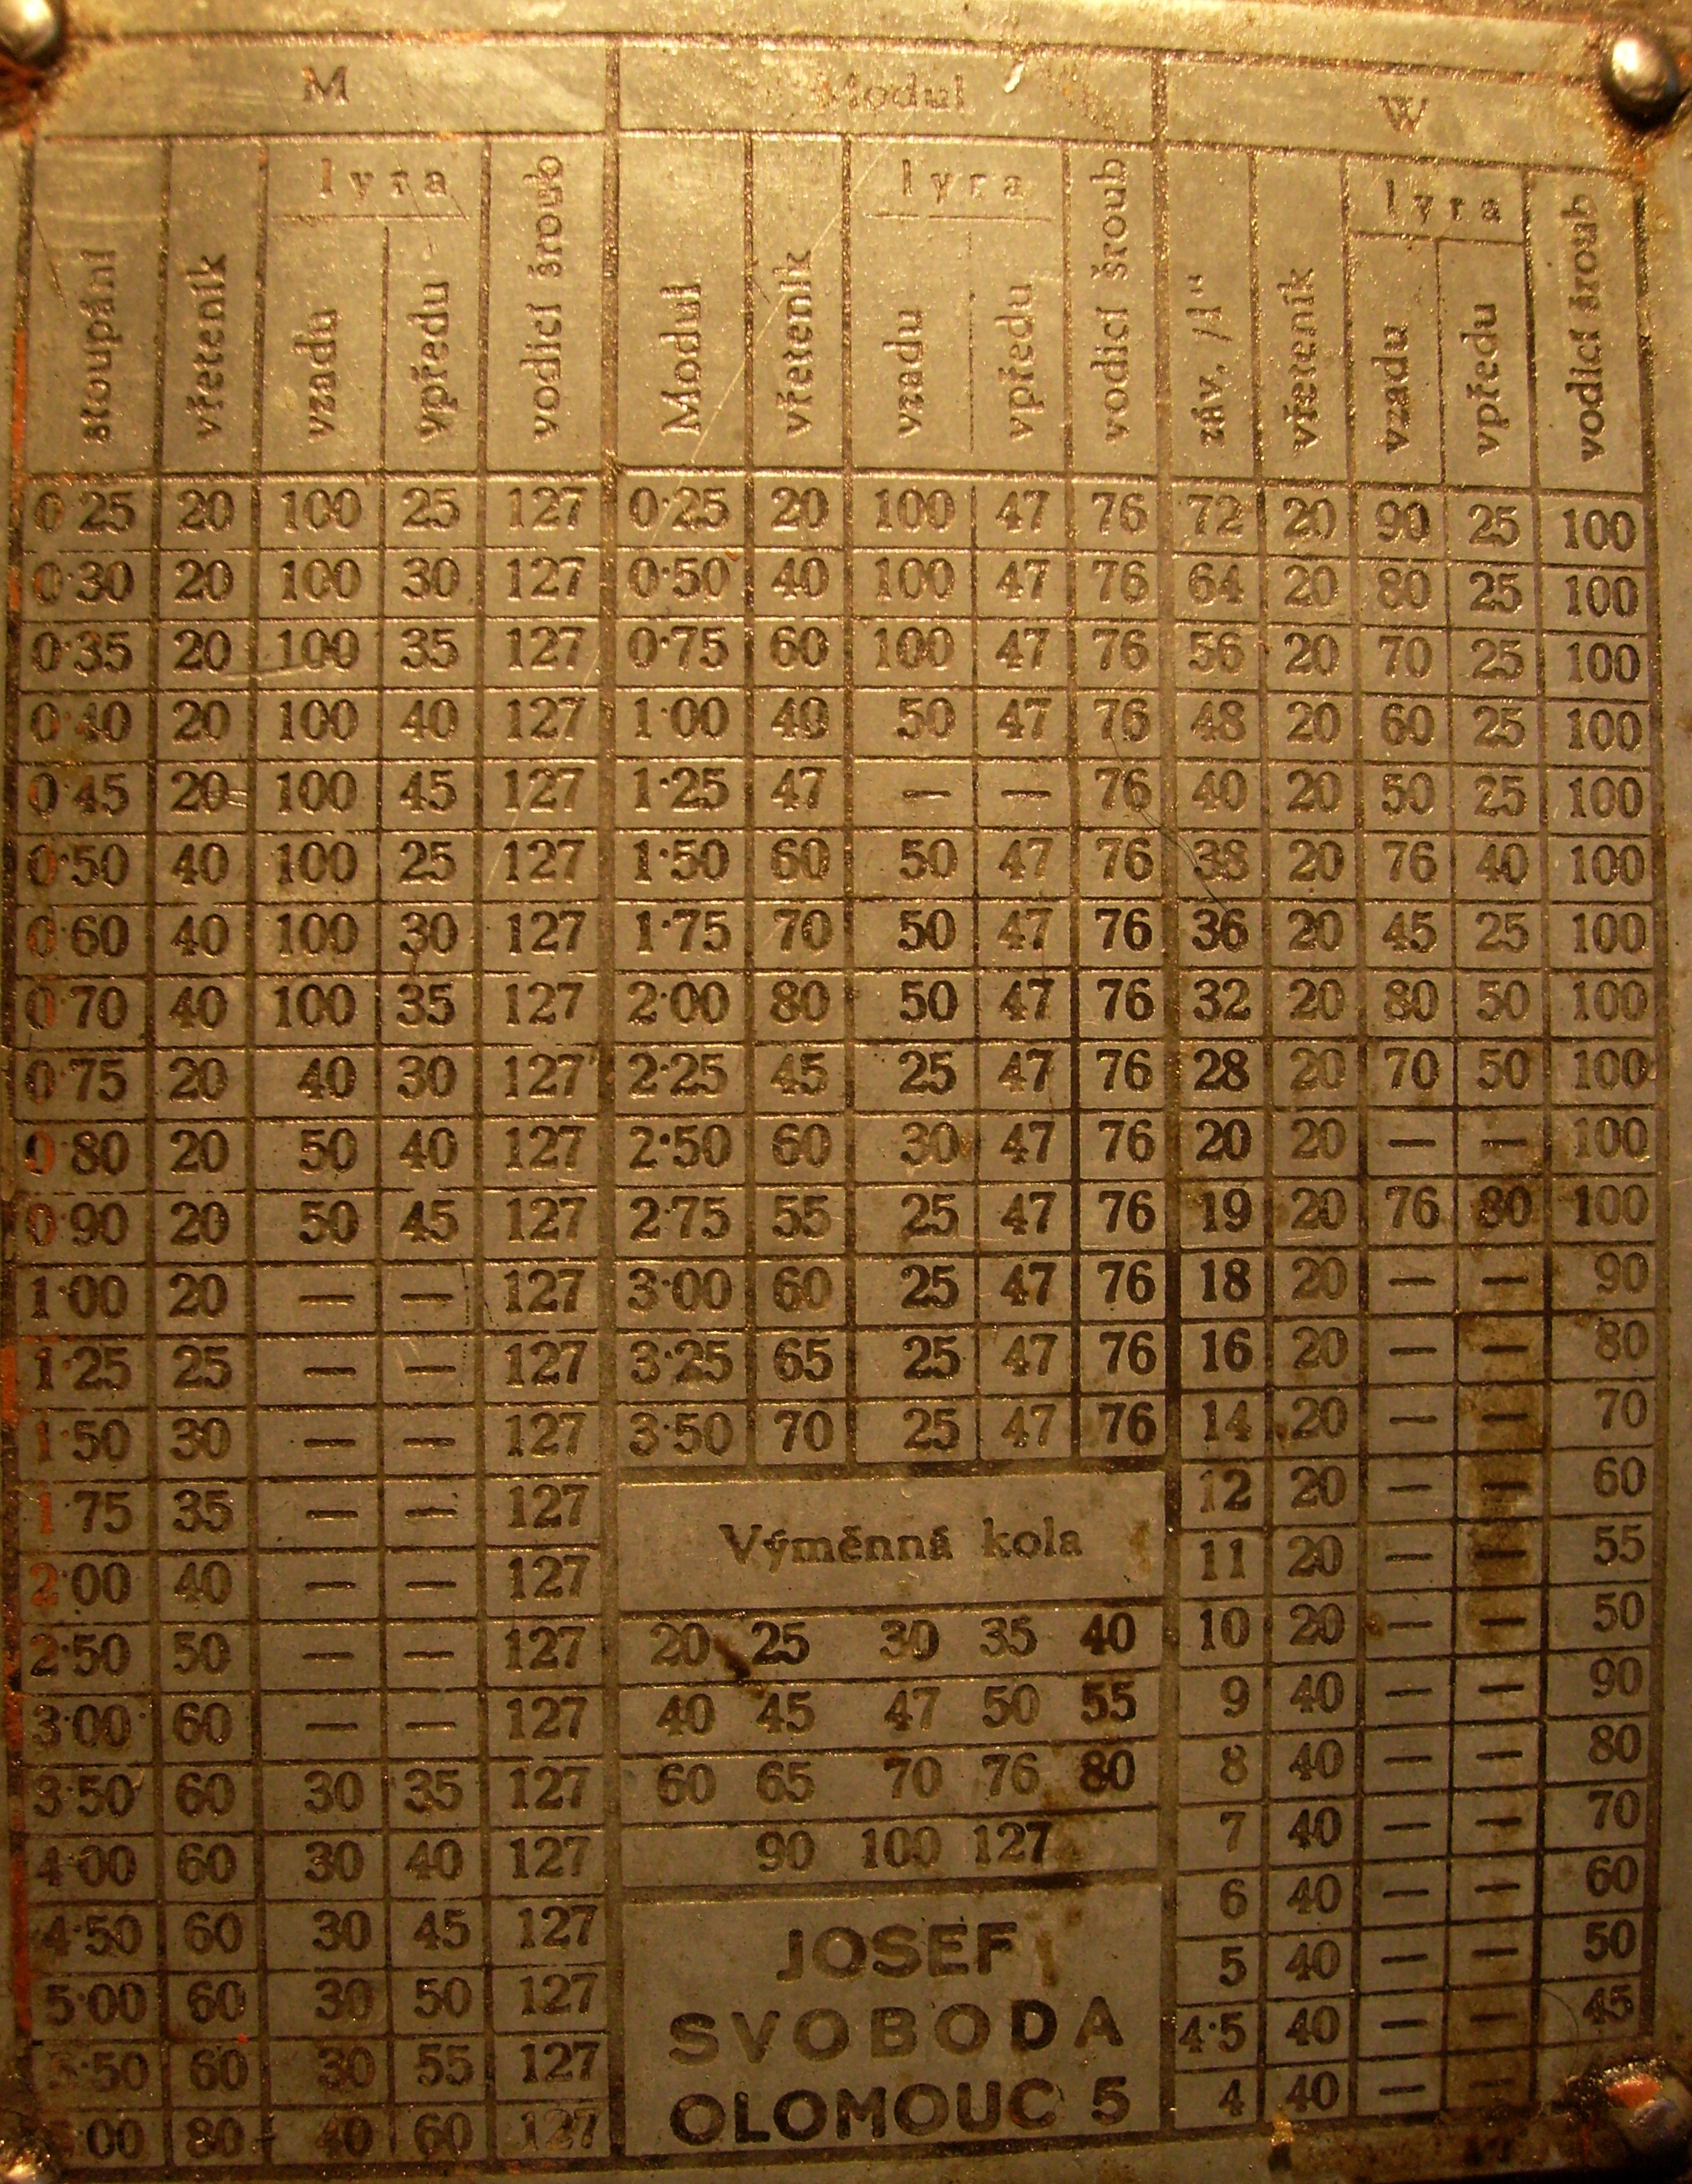 M Modul W
stoupání vřeteník lyra vzadu vpředu vodicí šroub Modul vřeteník lyra vzadu vpředu vodicí šroub záv. /1“ vřeteník lyra vzadu vpředu vodicí šroub
0·25 20 100 25 127 0·25 20 100 47 76 72 20 90 25 100
0·30 20 100 30 127 0·50 40 100 47 76 64 20 80 25 100
0·35 20 100 35 127 0·75 60 100 47 76 56 20 70 25 100
0·40 20 100 40 127 1·00 40 50 47 76 48 20 60 25 100
0·45 20 100 45 127 1·25 47 — — 76 40 20 50 25 100
0·50 40 100 25 127 1·50 60 50 47 76 38 20 76 40 100
0·60 40 100 30 127 1·75 70 50 47 76 36 20 45 25 100
0·70 40 100 35 127 2·00 80 50 47 76 32 20 80 50 100
0·75 20 40 30 127 2·25 45 25 47 76 28 20 70 50 100
0·80 20 50 40 127 2·50 60 30 47 76 20 20 — — 100
0·90 20 50 45 127 2·75 55 25 47 76 19 20 76 80 100
1·00 20 — — 127 3·00 60 25 47 76 18 20 — — 90
1·25 25 — — 127 3·25 65 25 47 76 16 20 — — 80
1·50 30 — — 127 3·50 70 25 47 76 14 20 — — 70
1·75 35 — — 127 Výměnná kola 12 20 — — 60
2·00 40 — — 127 11 20 — — 55
2·50 50 — — 127 20 25 30 35 40 10 20 — — 50
3·00 60 — — 127 40 45 47 50 55 9 40 — — 90
3·50 60 30 35 127 60 65 70 76 80 8 40 — — 80
4·00 60 30 40 127 90 100 127 7 40 — — 70
4·50 60 30 45 127 JOSEF 6 40 — — 60
5·00 60 30 50 127 SVOBODA 5 40 — — 50
5·50 60 30 55 127 4·5 40 — — 45
00 80 40 60 127 OLOMOUC 5 4 40 — —